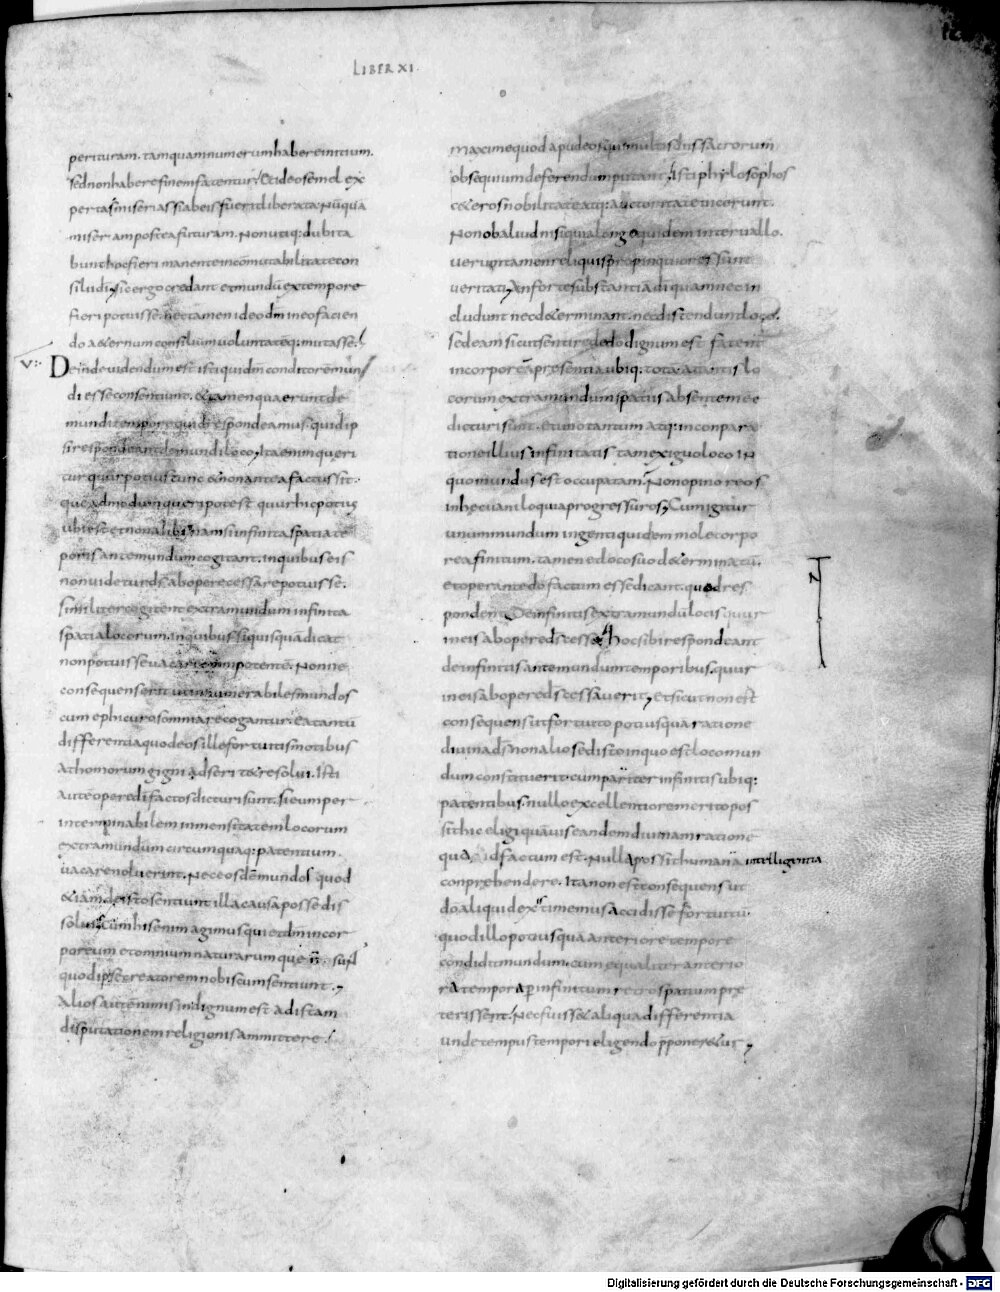 LIBER XI.
perituram. tamquam numerum habere initium.
sed non habere finem fatentur. & ideo semel ex
pertas miserias si ab eis fuerit liberata nūquā
miseram postea futuram. Non utiq: dubita
bunt hoc fieri manente incōmutabilitate con
silii di, sic ergo credant et mundū ex tempore
fieri potuisse. nec tamen ideo dm̄ in eo facien
do aeternum consilium uoluntatēq. mutasse.
V:
Deinde uidendum est isti qui dm̄ conditorem mun
di esse consentiunt. & tamen quaerunt de
mundi tempore quid respondeamus. quid ip
si respondeant de mundi loco, Ita enim queri
tur quur potius tunc & non antea factus sit.
que admodum queri potest quur hic potius
ubi est et non alibi. Nam si infinita spatia tē
poris ante mundum cogitant. in quibus eis
non uidetur ds̄ ab opere cessare potuisse.
similiter cogitent extra mundum infinita
spatia locorum. in quibus si quisquā dicat
non potuisse uacare omnipotentē. Nonne
consequens erit ut innumerabiles mundos
cum ephicuro somniare cogantur. ea tantū
differentia quod eos ille fortuitis motibus
athomorum gigni adserit & resolui. Isti
autē opere dī factos dicturi sunt. si eum per
interminabilem inmensitatem locorum
extra mundum circumquaq: patentium.
uacare noluerint. Nec eosdē mundos quod
& iam de isto sentiunt illa causa posse dis
solui, Cum his enim agimus qui et dm̄ incor
poreum et omnium naturarum que
quod ipse creatorem nobiscum sentiunt.,
Alios autem nimis indignum est ad istam
disputationem religionis ammittere.
maxime quod apud eos qui multis diis sacrorum
obsequium deferendum putant. Isti phylosophos
c&eros nobilitate atq: auctoritate uicerunt.
Non ob aliud nisi quia longo quidem interuallo.
uerumtamen reliquis propinquiores sunt
ueritati, An forte substantiā dī quam nec in
cludunt nec det&erminant. nec distendunt loco.
sed eam sicut sentire de dō dignum est fatent
incorporeā presentia ubiq. totā. a tantis lo
corum extra mundum spatiis absentem eē
dicturi sunt. et uno tantum atq: in conpara
tione illius infinitatis tam exiguo loco In
quo mundus est occupatam. Non opinor eos
in hec uaniloquia progressuros, Cum igitur
unum mundum ingenti quidem mole corpo
rea finitum. tamen et loco suo d&erminatū.
et operante dō factum esse dicant. quod res
pondent de infinitis extra mundū locis quur
in eis ab opere ds̄ cesset. Hoc sibi respondeant
de infinitis ante mundum temporibus. quur
in eis ab opere ds̄ cessauerit, et sicut non est
consequens ut fortuito potius quā ratione
diuina ds̄ non alio sed isto in quo est loco mun
dum constituerit. cum pariter infinitis ubiq:
patentibus. nullo excellentiore merito pos
sit hic eligi. quāuis eandem diuinam rationē
qua id factum est. Nulla possit humana intelligentia
conprehendere. Ita non est consequens ut
dō aliquid existimemus accidisse fortuitū.
quod illo potius quā anteriore tempore
condidit mundum. cum equaliter anterio
ra tempora p infinitum retro spatium pre
terissent. Nec fuiss& aliqua differentia
unde tempus tempori eligendo ppone&ur,
Digitalisierung gefördert durch die Deutsche Forschungsgemeinschaft - DFG